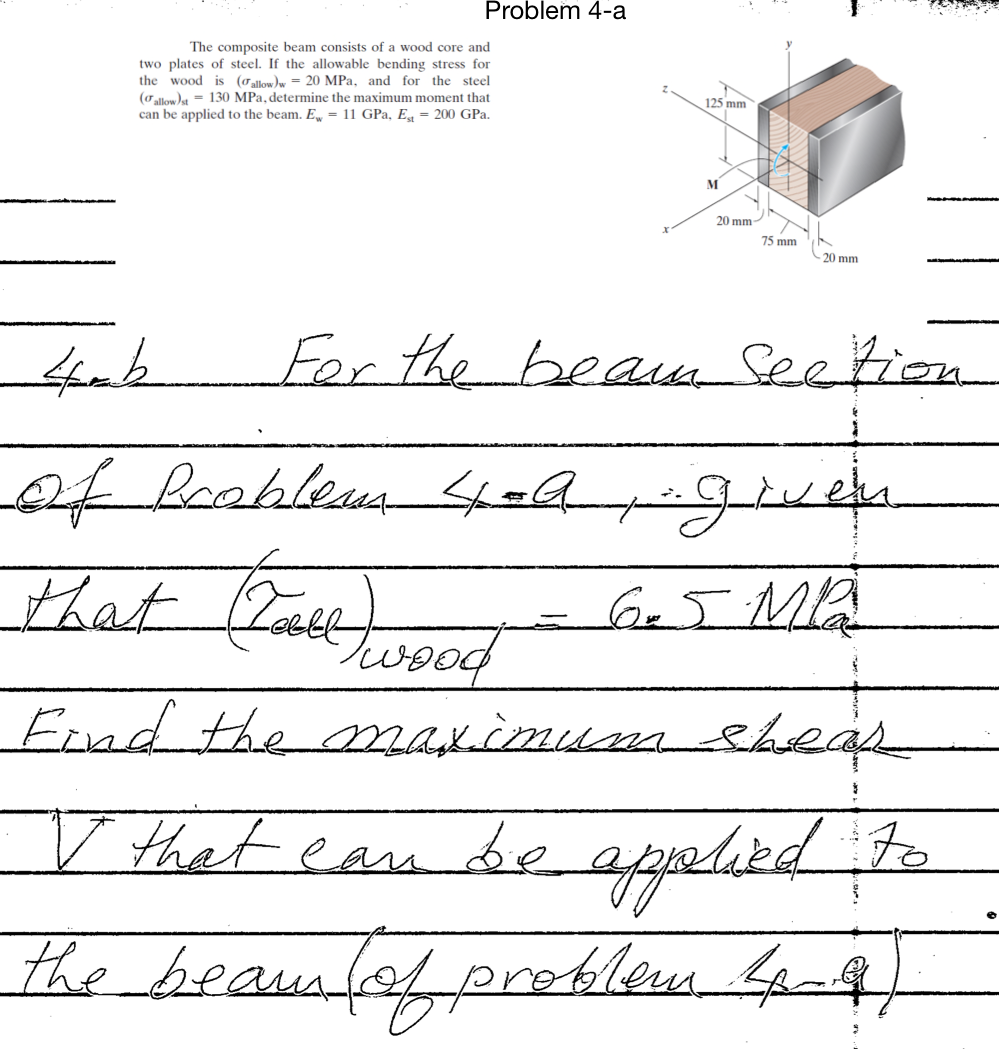 Problem 4-a
The composite beam consists of a wood core and
two plates of steel. If the allowable bending stress for
the wood is (σallow)w = 20 MPa, and for the steel
(σallow)st = 130 MPa, determine the maximum moment that
can be applied to the beam. Ew = 11 GPa, Est = 200 GPa.
y
z
125 mm
M
20 mm
x
75 mm
20 mm
4-b For the beam section
of Problem 4-a, given
that (τall)wood = 6.5 MPa
Find the maximum shear
V that can be applied to
the beam (of problem 4-a)